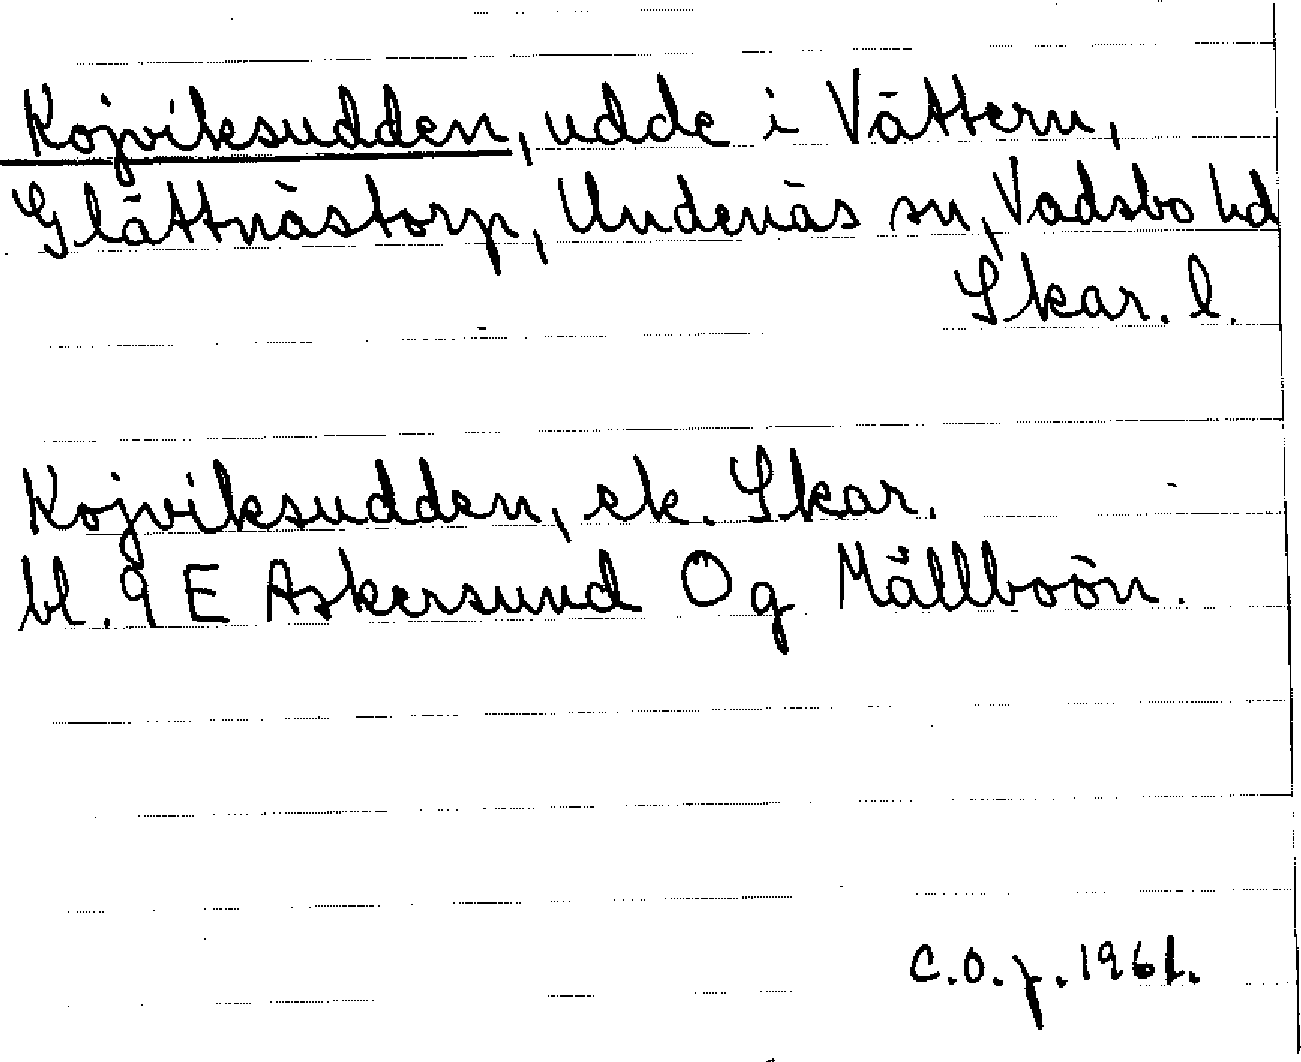 Kojviksudden, udde i Vättern,
Glättnästorp, Undenäs sn, Vadsbo hd
Skar. l.
Kojviksudden, ek. Skar.
bl. 9 E Askersund 0 g Mållboön.
C.O.f. 1961.